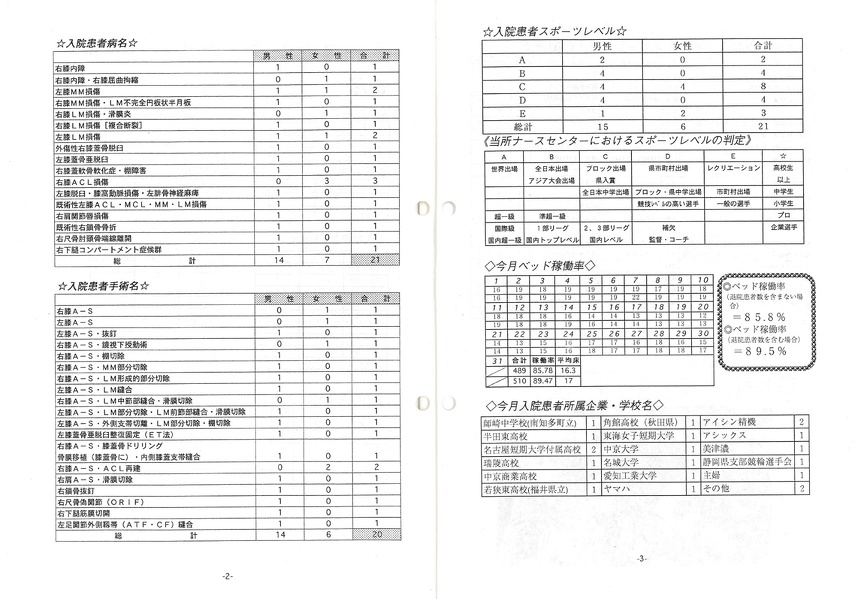 ☆入院患者病名☆
男 性 女 性 合 計
右膝内障 1 0 1
右膝内障・右膝屈曲拘縮 0 1 1
左膝MM損傷 1 1 2
右膝MM損傷・LM不完全円板状半月板 1 0 1
右膝LM損傷・滑膜炎 0 1 1
右膝LM損傷［複合断裂］ 1 0 1
左膝LM損傷 1 1 2
外傷性右膝蓋骨脱臼 1 0 1
左膝蓋骨亜脱臼 1 0 1
右膝蓋軟骨軟化症・棚障害 1 0 1
右膝ACL損傷 0 3 3
左膝脱臼・膝窩動脈損傷・左腓骨神経麻痺 1 0 1
既術性左膝ACL・MCL・MM・LM損傷 1 0 1
右肩関節唇損傷 1 0 1
既術性右鎖骨骨折 1 0 1
右尺骨肘頭骨端線離開 1 0 1
右下腿コンパートメント症候群 1 0 1
総 計 14 7 21
☆入院患者手術名☆
男 性 女 性 合 計
右膝A－S 0 1 1
左膝A－S 0 1 1
左膝A－S・抜釘 1 0 1
右膝A－S・鏡視下授動術 0 1 1
右膝A－S・棚切除 1 0 1
右膝A－S・MM部分切除 1 0 1
右膝A－S・LM形成的部分切除 1 0 1
左膝A－S・LM縫合 1 0 1
右膝A－S・LM中節部縫合・滑膜切除 0 1 1
左膝A－S・LM部分切除・LM前節部縫合・滑膜切除 1 0 1
左膝A－S・外側支帯切離・LM部分切除・棚切除 1 0 1
左膝蓋骨亜脱臼整復固定（ET法） 1 0 1
右膝A－S・膝蓋骨ドリリング
骨膜移植（膝蓋骨に）・内側膝蓋支帯縫合 1 0 1
右膝A－S・ACL再建 0 2 2
右肩A－S・滑膜切除 1 0 1
右鎖骨抜釘 1 0 1
右尺骨偽関節（ORIF） 1 0 1
右下腿筋膜切開 1 0 1
左足関節外側靱帯（ATF・CF）縫合 1 0 1
総 計 14 6 20
-2-
☆入院患者スポーツレベル☆
男性 女性 合計
A 2 0 2
B 4 0 4
C 4 4 8
D 4 0 4
E 1 2 3
総計 15 6 21
《当所ナースセンターにおけるスポーツレベルの判定》
A B C D E ☆
世界出場 全日本出場 ブロック出場 県市町村出場 レクリエーション 高校生
アジア大会出場 県入賞 以上
全日本中学出場 ブロック・県中学出場 市町村出場 中学生
競技レベルの高い選手 一般の選手 小学生
超一級 準超一級 プロ
国際級 1部リーグ 2、3部リーグ 補欠 企業選手
国内超一級 国内トップレベル 国内レベル 監督・コーチ
◇今月ベッド稼働率◇
1 2 3 4 5 6 7 8 9 10
16 19 18 19 19 19 19 17 19 18
16 19 19 19 19 19 22 19 19 19
11 12 13 14 15 16 17 18 19 20
18 18 18 16 14 14 13 13 13 12
19 18 18 19 16 14 14 13 13 13
21 22 23 24 25 26 27 28 29 30
14 13 15 16 17 17 16 18 16 15
14 13 15 16 18 17 17 18 18 17
31 合計 稼働率 平均床
489 85.78 16.3
510 89.47 17
◎ベッド稼働率
（退院患者数を含まない場
合）
＝85.8％
◎ベッド稼働率
（退院患者数を含む場合）
＝89.5％
◇今月入院患者所属企業・学校名◇
師崎中学校(南知多町立) 1 角館高校（秋田県） 1 アイシン精機 2
半田東高校 1 東海女子短期大学 1 アシックス 1
名古屋短期大学付属高校 2 中京大学 1 美津濃 1
瑞陵高校 1 名城大学 1 静岡県支部競輪選手会 1
中京商業高校 1 愛知工業大学 1 主婦 1
若狭東高校(福井県立) 1 ヤマハ 1 その他 2
-3-